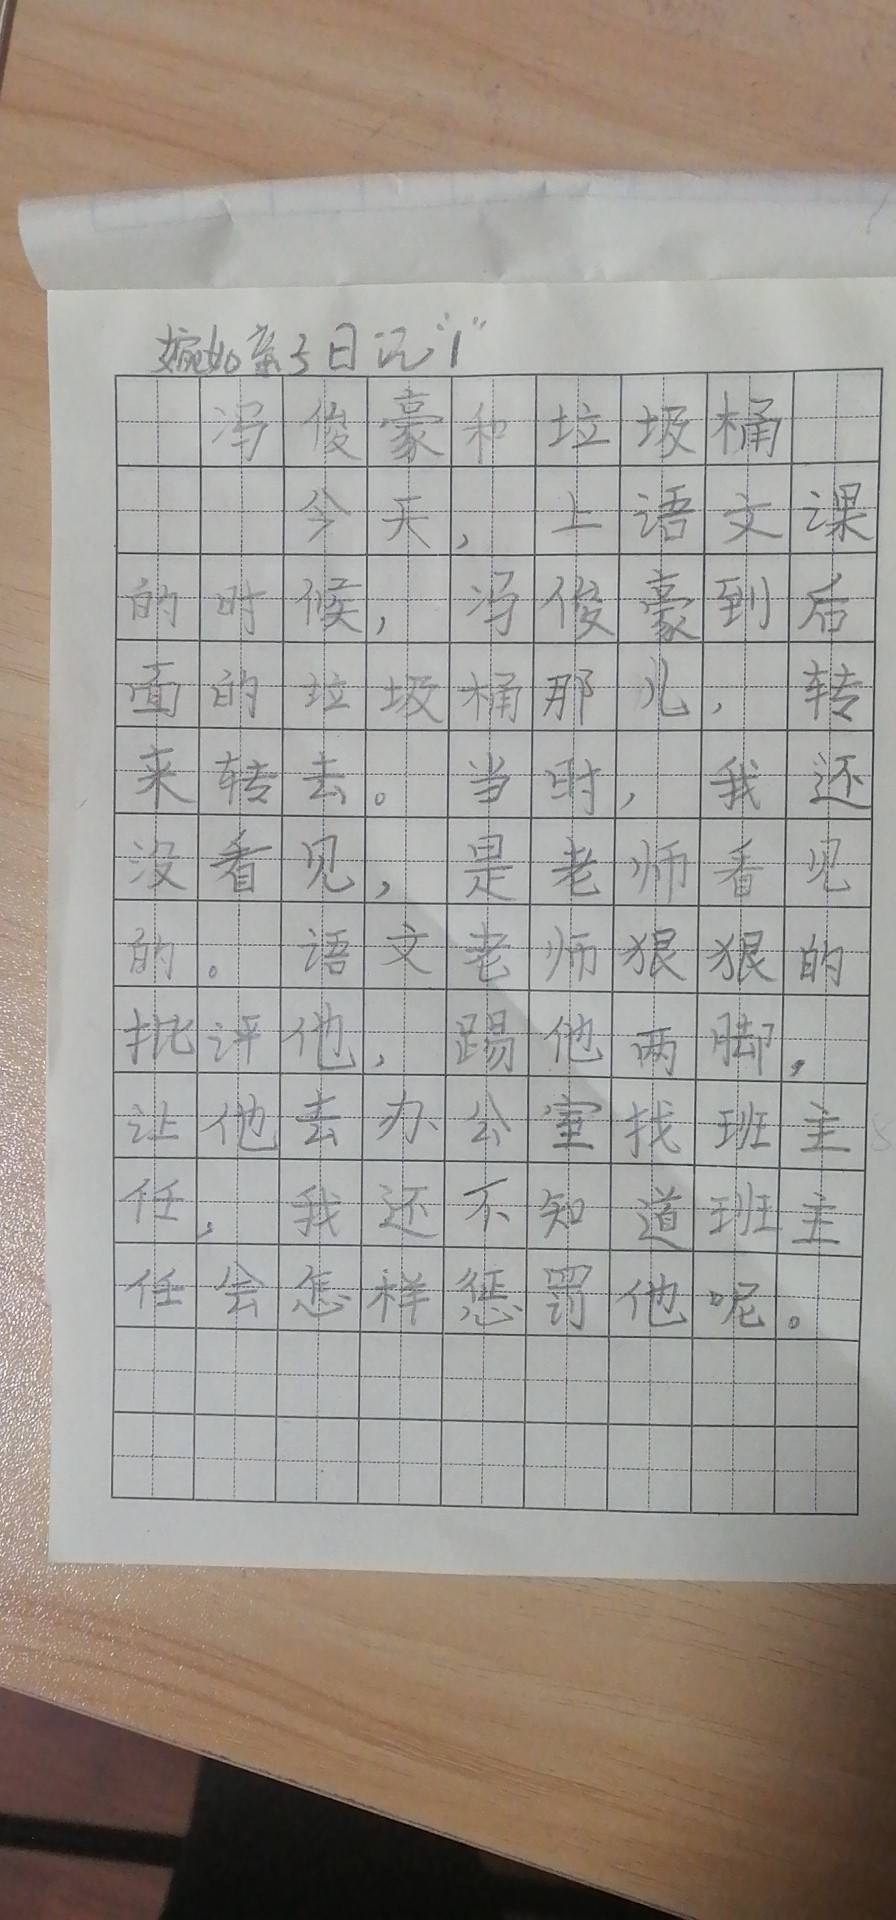 婉如亲子日记“1”
冯俊豪和垃圾桶
今天，上语文课
的时候，冯俊豪到后
面的垃圾桶那儿，转
来转去。当时，我还
没看见，是老师看见
的。语文老师狠狠的
批评他，踢他两脚，
让他去办公室找班主
任，我还不知道班主
任会怎样惩罚他呢。